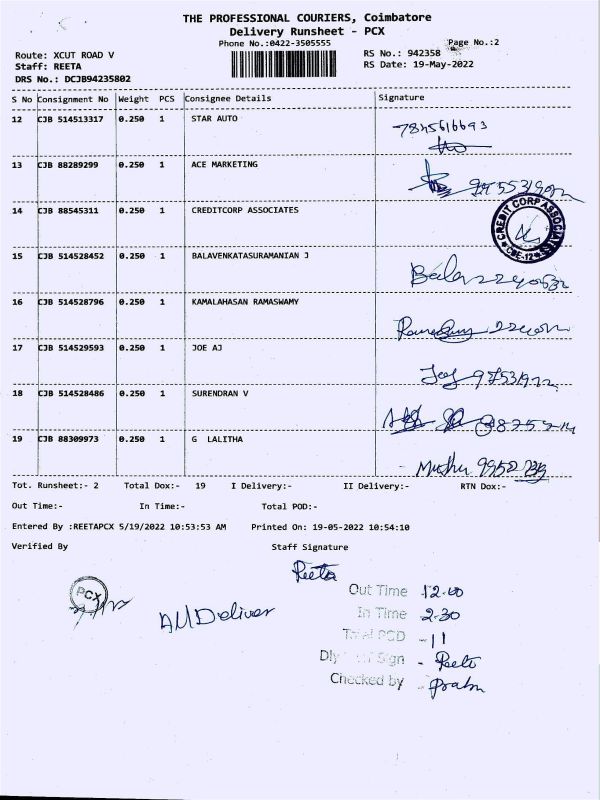 THE PROFESSIONAL COURIERS, Coimbatore
Delivery Runsheet - PCX
Phone No.:0422-3505555
Page No.:2
Route: XCUT ROAD V
RS No.: 942358
Staff: REETA
RS Date: 19-May-2022
DRS No.: DCJB94235802
S No Consignment No Weight PCS Consignee Details Signature
12 CJB 514513317 0.250 1 STAR AUTO
7845616693
13 CJB 88289299 0.250 1 ACE MARKETING
14 CJB 88545311 0.250 1 CREDITCORP ASSOCIATES
CREDIT CORP ASSOCIATES
CBE-12
15 CJB 514528452 0.250 1 BALAVENKATASURAMANIAN J
16 CJB 514528796 0.250 1 KAMALAHASAN RAMASWAMY
17 CJB 514529593 0.250 1 JOE AJ
18 CJB 514528486 0.250 1 SURENDRAN V
19 CJB 88309973 0.250 1 G LALITHA
Muthu
Tot. Runsheet:- 2 Total Dox:- 19 I Delivery:- II Delivery:- RTN Dox:-
Out Time:- In Time:- Total POD:-
Entered By :REETAPCX 5/19/2022 10:53:53 AM Printed On: 19-05-2022 10:54:10
Verified By Staff Signature
Reeta
PCX
All Deliver
Out Time 12.00
In Time 2.30
Total POD - 11
Sign - Reeta
Checked by